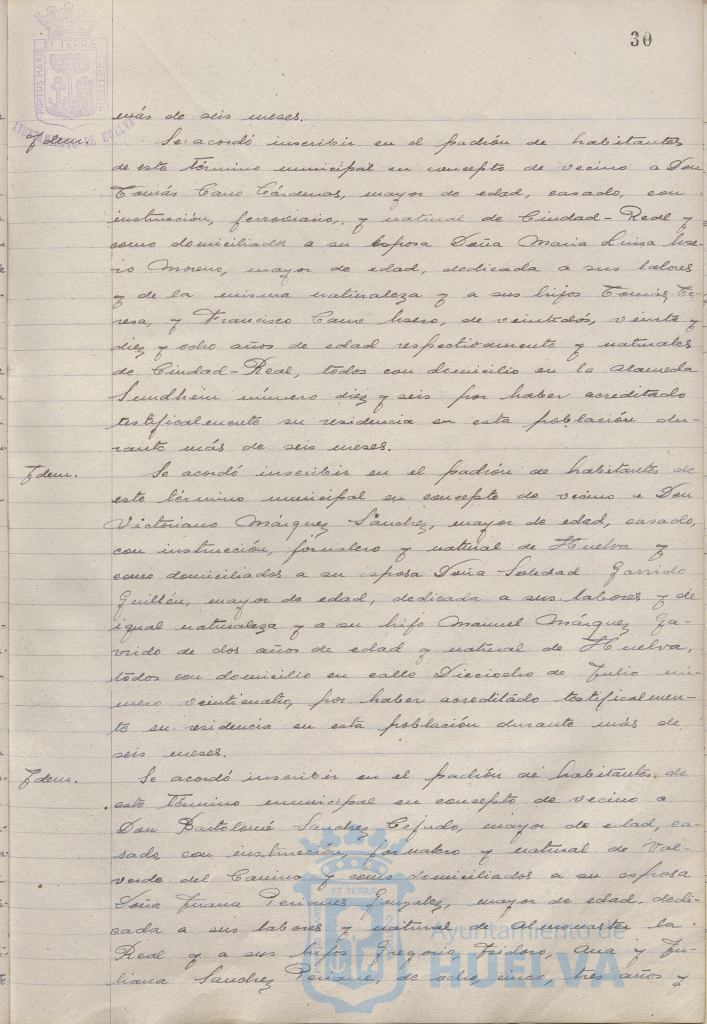 30
PORTUS MARIS ET TERRÆ CUSTODIA
AYUNTAMIENTO DE HUELVA
más de seis meses.
Idem. Se acordó inscribir en el padrón de habitantes
de este término municipal en concepto de vecino a Don
Tomás Cano Cárdenas, mayor de edad, casado, con
instrucción, ferroviario, y natural de Ciudad-Real y
como domiciliados a su esposa Doña Maria Luisa
Moreno, mayor de edad, dedicada a sus labores
y de la misma naturaleza y a sus hijos Tomás, Te-
resa, y Francisco Cano de veintidós, veinte y
diez y ocho años de edad respectivamente y naturales
de Ciudad-Real, todos con domicilio en la Alameda
Sundhein número diez y seis por haber acreditado
testificalmente su residencia en esta población du-
rante más de seis meses.
Idem. Se acordó inscribir en el padrón de habitantes de
este término municipal en concepto de vecino a Don
Victoriano Márquez Sánchez, mayor de edad, casado,
con instrucción, jornalero y natural de Huelva y
como domiciliados a su esposa Doña Soledad Garrido
Guillén, mayor de edad, dedicada a sus labores y de
igual naturaleza y a su hijo Manuel Márquez Ga-
rrido de dos años de edad y natural de Huelva,
todos con domicilio en calle Dieciocho de Julio nú-
mero veinticuatro, por haber acreditado testificalmen-
te su residencia en esta población durante más de
seis meses.
Idem. Se acordó inscribir en el padrón de habitantes de
este término municipal en concepto de vecino a
Don Bartolomé Sanchez Cejudo, mayor de edad, ca-
sado, con instrucción, jornalero y natural de Val-
verde del Camino y como domiciliados a su esposa
Doña Juana Gonzalez, mayor de edad, dedi-
cada a sus labores y natural de Almonaster la
Real y a sus hijos Gregorio, Isidoro, Ana y Ju-
liana Sanchez de ocho, cinco, tres años y
Ayuntamiento de
HUELVA